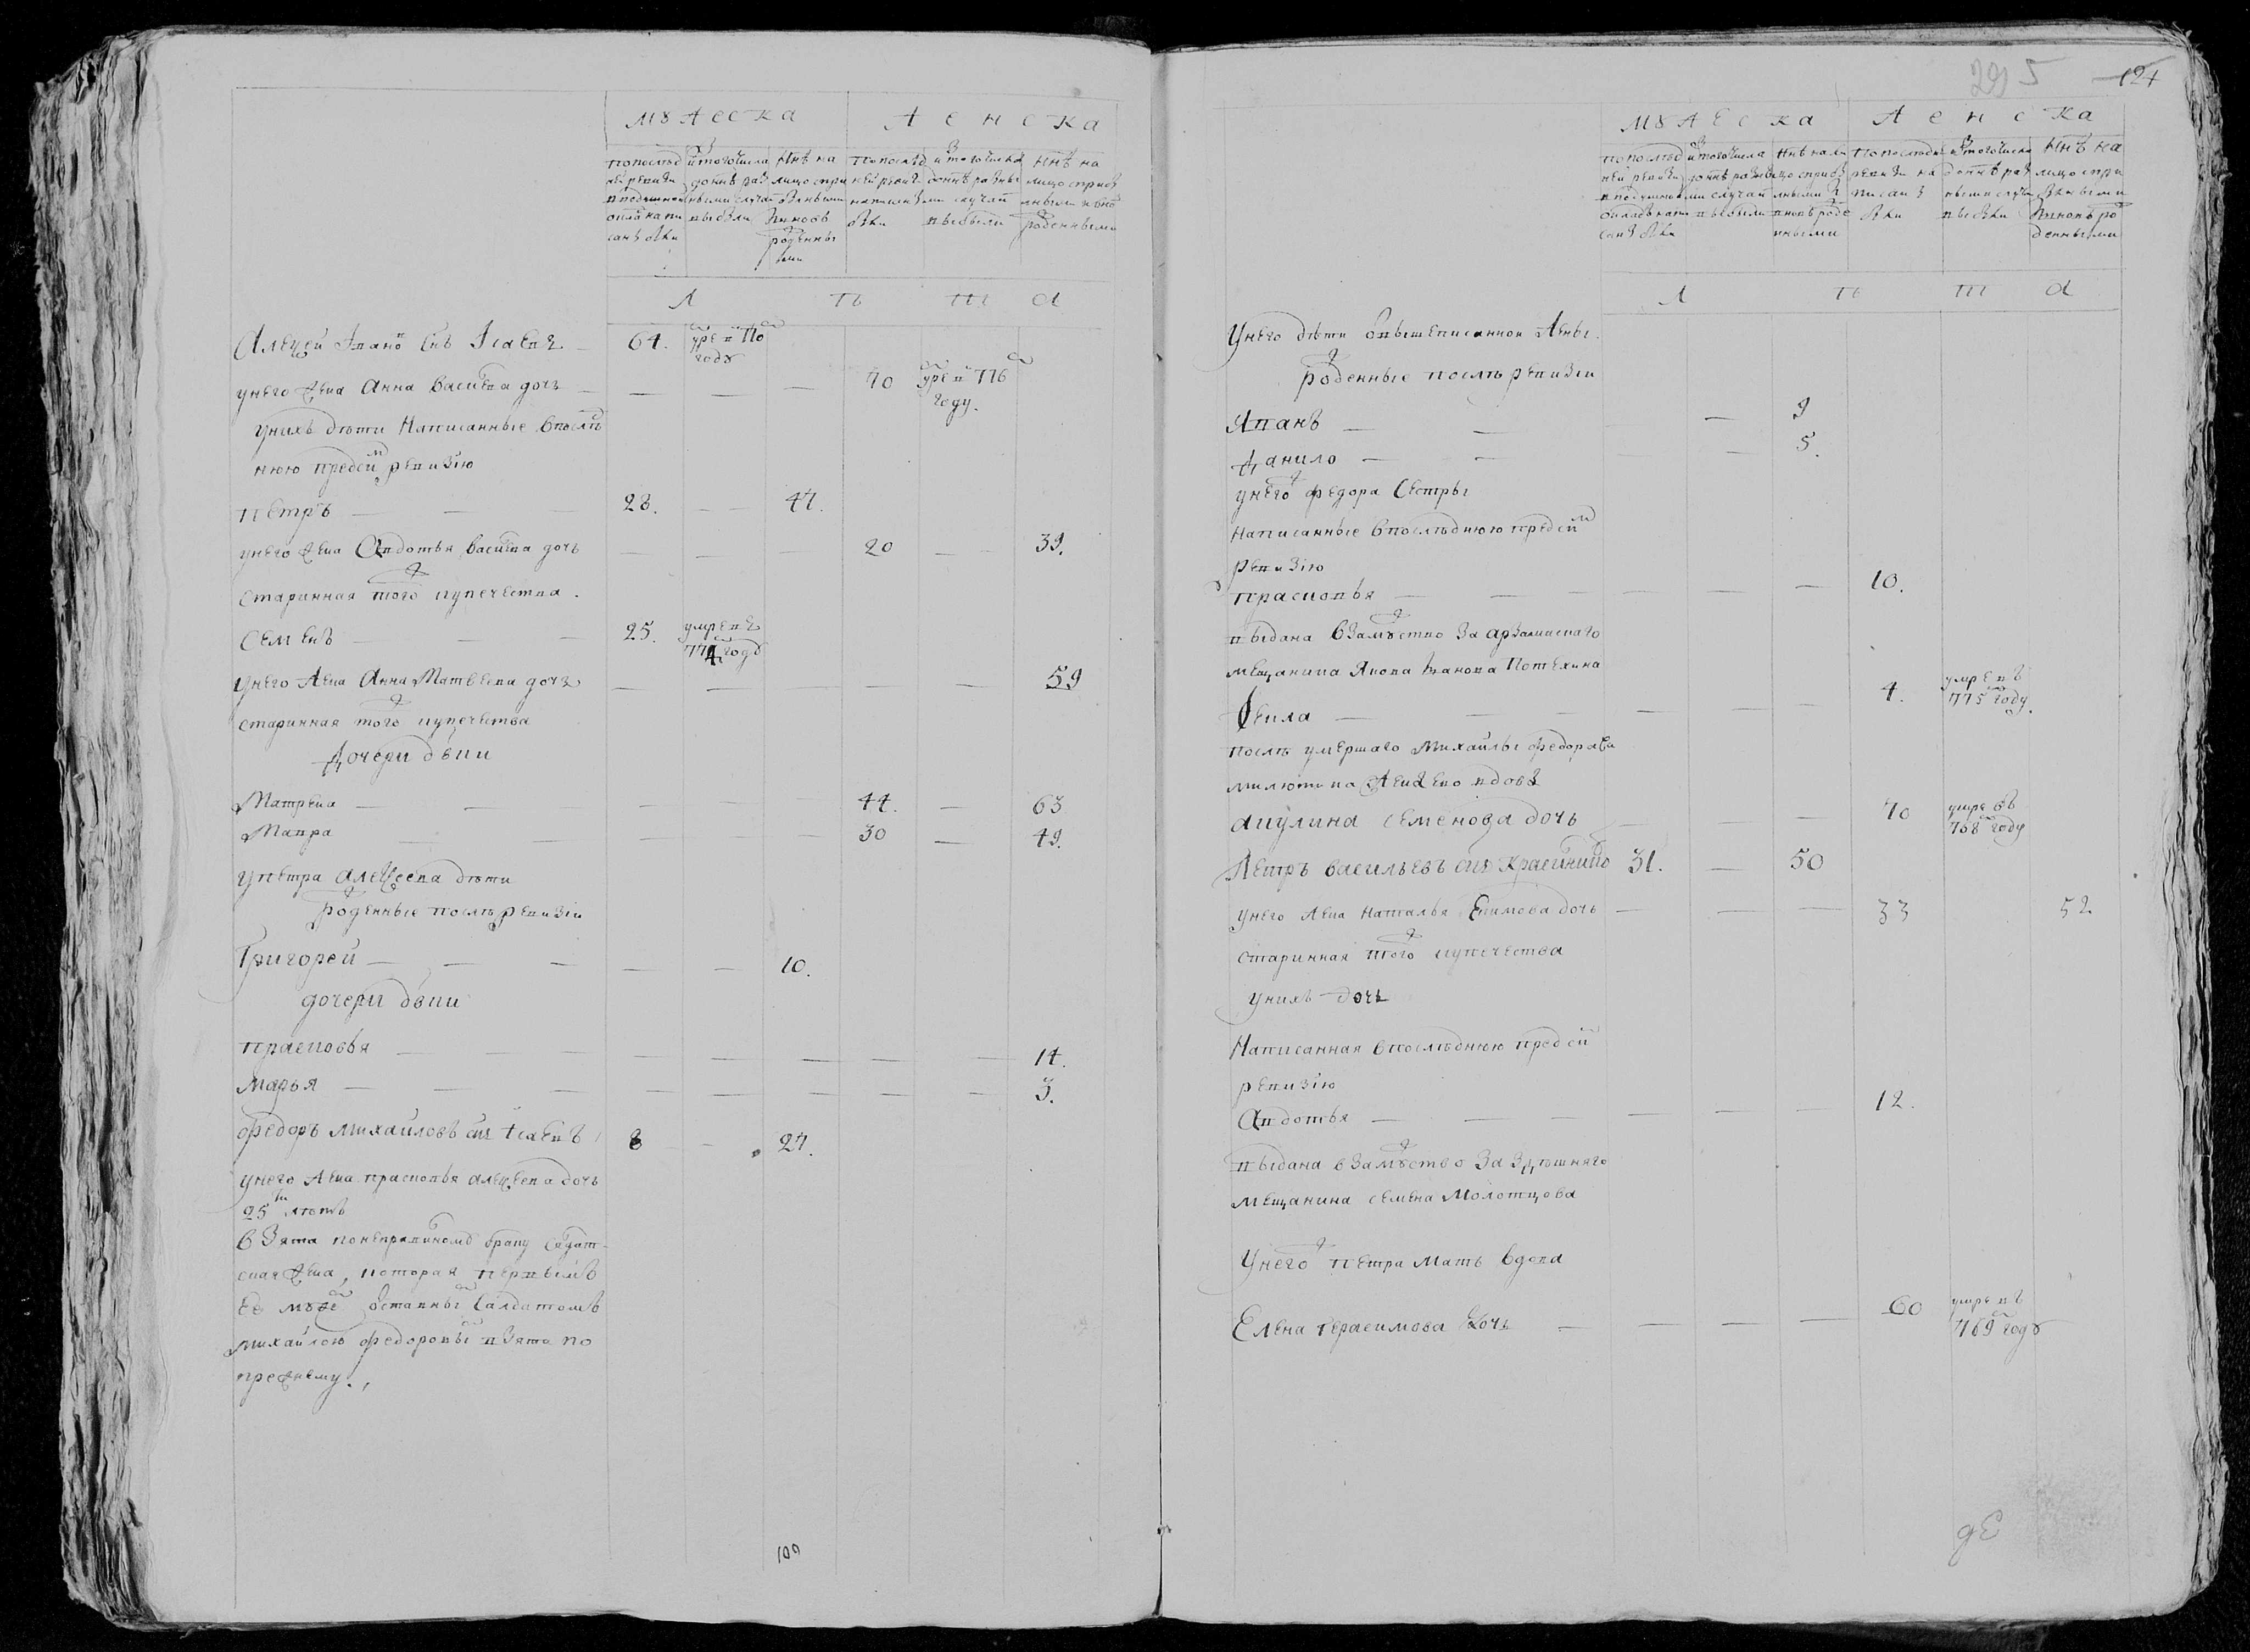 мужеска
женска
по послед
ней ревизи
в подушной
окладъ напи
саны были
ис того числа
до ннѣ раз
ными случаи
выбыли
ннѣ на
лицо спри
былыми
и вновь
рожденны
ми
по послед
ней ревизи
написаны
были
ис того числа
до ннѣ разны
ми случаи
выбыли
ннѣ на
лицо с приб
ылыми и вно
рожденными
Л ѣ т а
Алексей Иванов снъ Исаевъ 64. умре в 770 году
у него жена Анна Васильева дочь — — — 70 умре в 776 году.
у нихъ дѣти написанные в послѣ
нюю пред сим ревизию
Петръ — — — 28. — 47.
у него жена Авдотья Васильева дочь — — — 20 — 39.
старинная того ж купечества.
Семенъ — — 25. умре въ 774 году
у него жена Анна Матвеева дочь — — — — — 59
старинная того ж купечества
дочери двки
Матрена — — — — — — 44. — 63
Мавра — — — — — 30 — 49.
у Петра Алексеева дѣти
рожденные послѣ ревизiи
Григорей — — — — — 10.
дочери двки
Прасковья — — — — — — — — 14.
Марья — — — — — — — — 3.
Федоръ Михайловъ снъ Исаевъ 8 — 27.
у него жена Прасковья Алексеева дочь
25 ти лѣтъ
взята по неправилному браку салдат-
ская жена, которая первымъ
ее мужемъ отставным салдатомъ
Михайлою Федоровым взята по
прежнему.
100
295
124
мужеска
женска
по послед
ней ревизи
в подушной
окладъ напи
саны были
ис того числа
до ннѣ разны
ми случаи
выбыли
ннѣ нали
цо с прибы
лыми и
вновь рожде
нными
по последне
ревизи на
писаны
были
ис того числа
до ннѣ раз
ными случаи
выбыли
ннѣ на
лицо спри
былыми
и вновь ро
жденными
Л ѣ т а
У него дѣти с вышеписанной жены.
рожденные послѣ ревизiи
Иванъ — — — 9
Данило — — — — 5.
у него ж Федора сестры
написанные в послѣднюю пред сим
ревизiю
Прасковья — — — — — — 10.
выдана в замужство за арзамаскаго
мещанина Якова Иванова Потехина
Фекла — — — — — — 4. умре въ 775 году.
послѣ умершаго Михайлы Федорова
Милютина жена ево вдова
Акулина Семенова дочь — — — 70 умре въ 768 году
Петръ Васильевъ снъ Красилников 31. — 50
у него жена Наталья Екимова дочь — — — 33 52
старинная того ж купечества
у нихъ дочь
Написанная в послѣднюю пред сим
ревизiю
Авдотья — — — — — — 12.
выдана в замужство за здѣшняго
мещанина Семена Молотцова
У него ж Петра мать вдова
Елена Герасимова дочь — — — — 60 умре въ 769 году